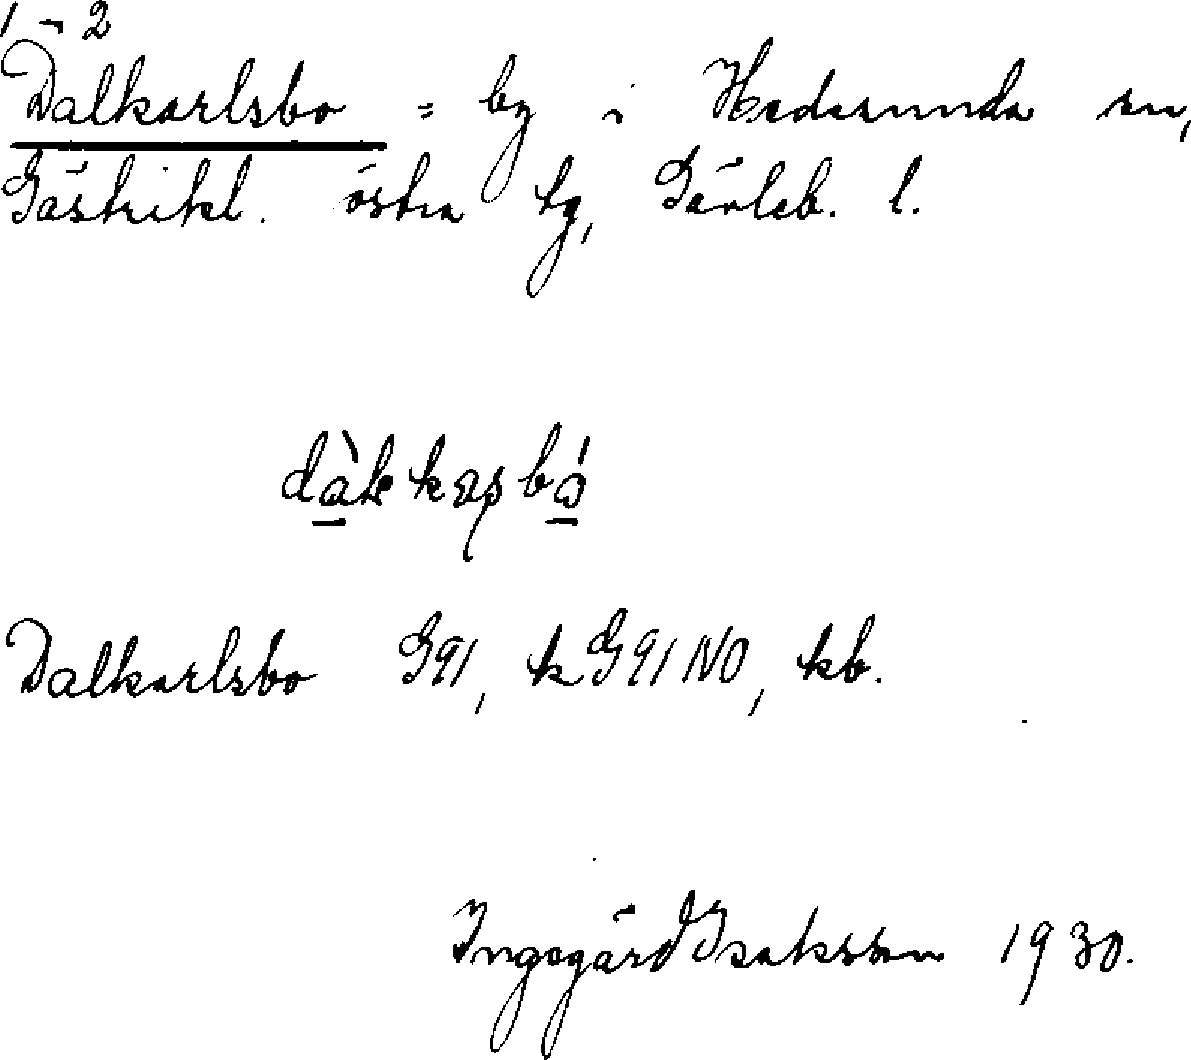 1-2
Dalkarlsbo = by i Hedesunda sn,
Gästrikl. östra tg, Gävleb. l.
dàkkasbó
Dalkarlsbo G91, kG91NO, kb.
Ingegärd Isaksson 1930.